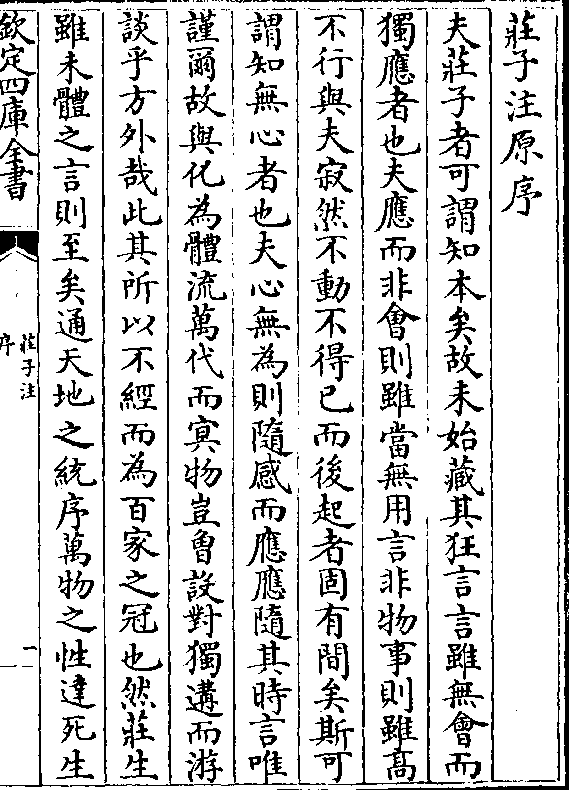 莊子注原序
夫莊子者可謂知本矣故未始藏其狂言言雖無會而
獨應者也夫應而非會則雖當無用言非物事則雖髙
不行與夫寂然不動不得已而後起者固有間矣斯可
謂知無心者也夫心無為則隨感而應應隨其時言唯
謹爾故與化為體流萬代而冥物豈曾設對獨遘而游
談乎方外哉此其所以不經而為百家之冠也然莊生
雖未體之言則至矣通天地之統序萬物之性達死生
欽定四庫全書
莊子注
序
一